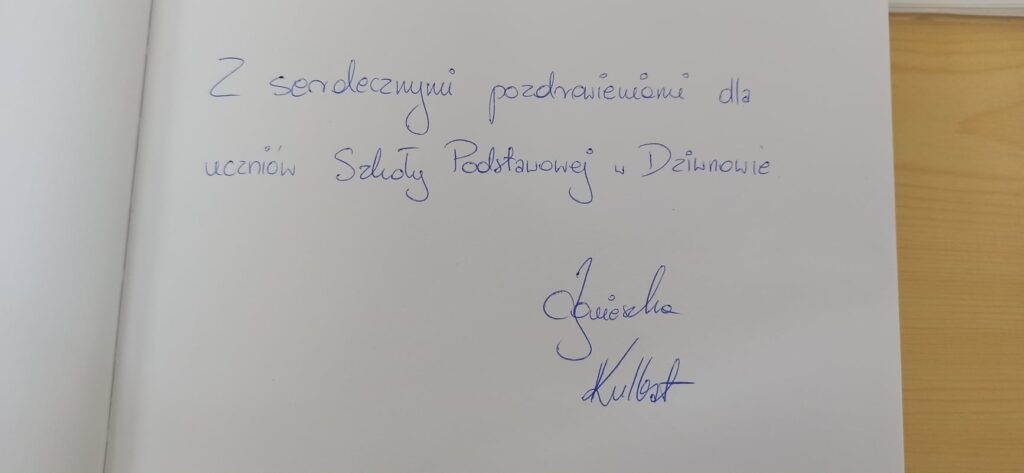 Z serdecznymi pozdrowieniami dla
uczniów Szkoły Podstawowej w Dziwnowie
Agnieszka
Kulbat